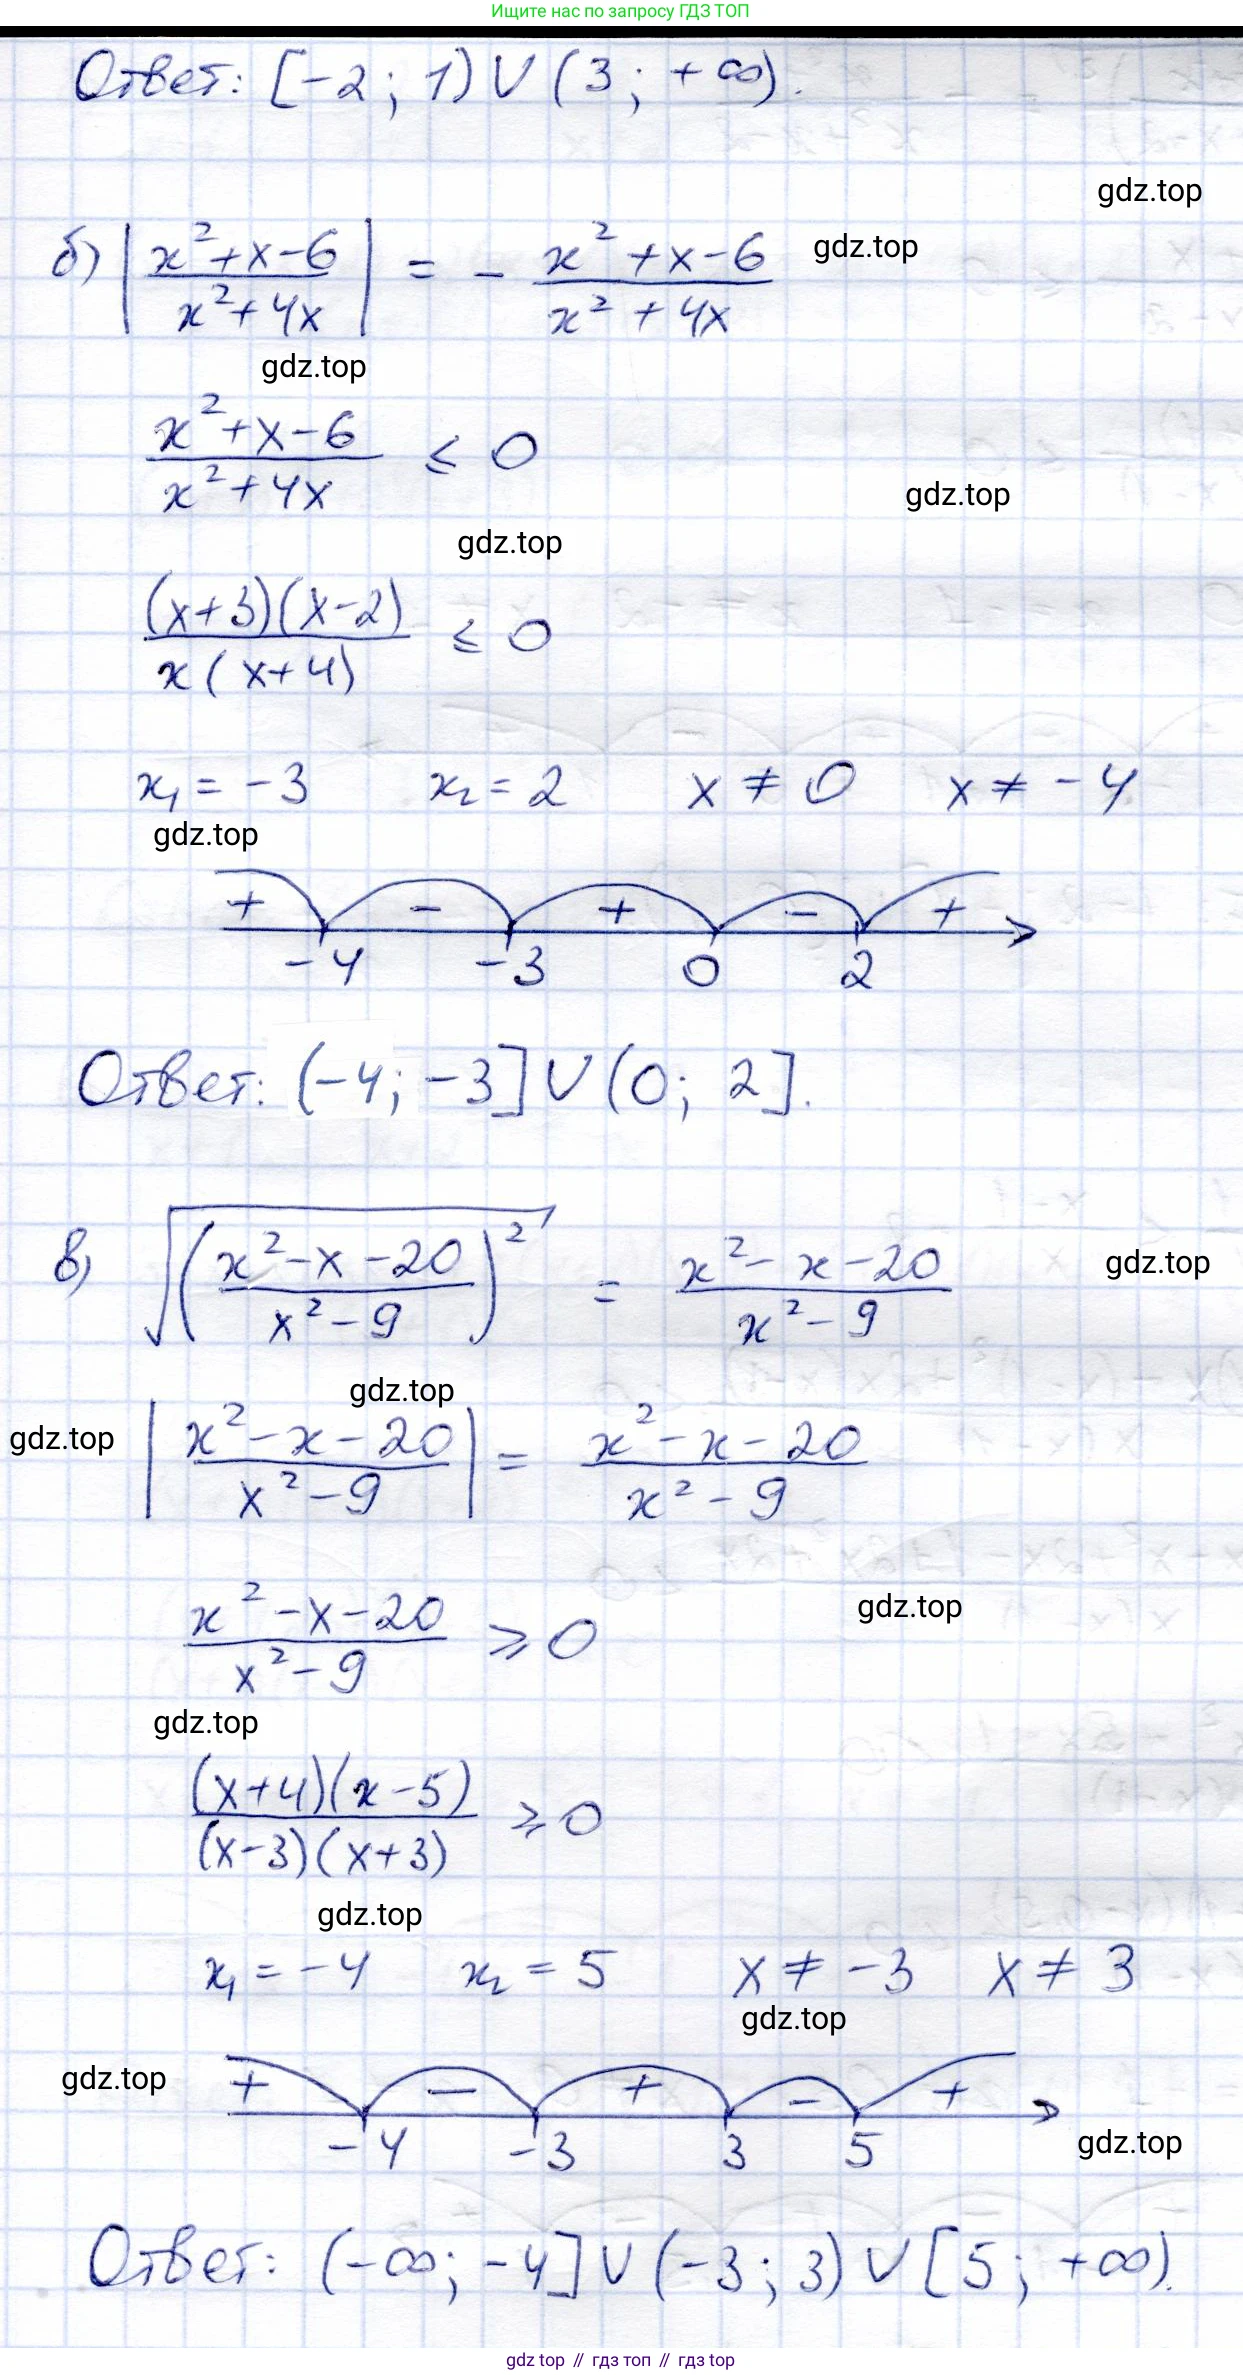 Ищите нас по запросу ГДЗ ТОП
Ответ: [-2; 1) ∪ (3; +∞).
gdz.top
б) |(x²+x-6)/(x²+4x)| = - (x²+x-6)/(x²+4x)
gdz.top
gdz.top
(x²+x-6)/(x²+4x) ≤ 0
gdz.top
gdz.top
((x+3)(x-2))/(x(x+4)) ≤ 0
x₁ = -3 x₂ = 2 x ≠ 0 x ≠ -4
gdz.top
+ - + - +
-4 -3 0 2
Ответ: (-4; -3] ∪ (0; 2].
в) √((x²-x-20)/(x²-9))² = (x²-x-20)/(x²-9)
gdz.top
gdz.top
gdz.top
|(x²-x-20)/(x²-9)| = (x²-x-20)/(x²-9)
(x²-x-20)/(x²-9) ≥ 0
gdz.top
gdz.top
((x+4)(x-5))/((x-3)(x+3)) ≥ 0
gdz.top
x₁ = -4 x₂ = 5 x ≠ -3 x ≠ 3
gdz.top
gdz.top
+ - + - +
-4 -3 3 5
gdz.top
Ответ: (-∞; -4] ∪ (-3; 3) ∪ [5; +∞).
gdz top // гдз топ // gdz top